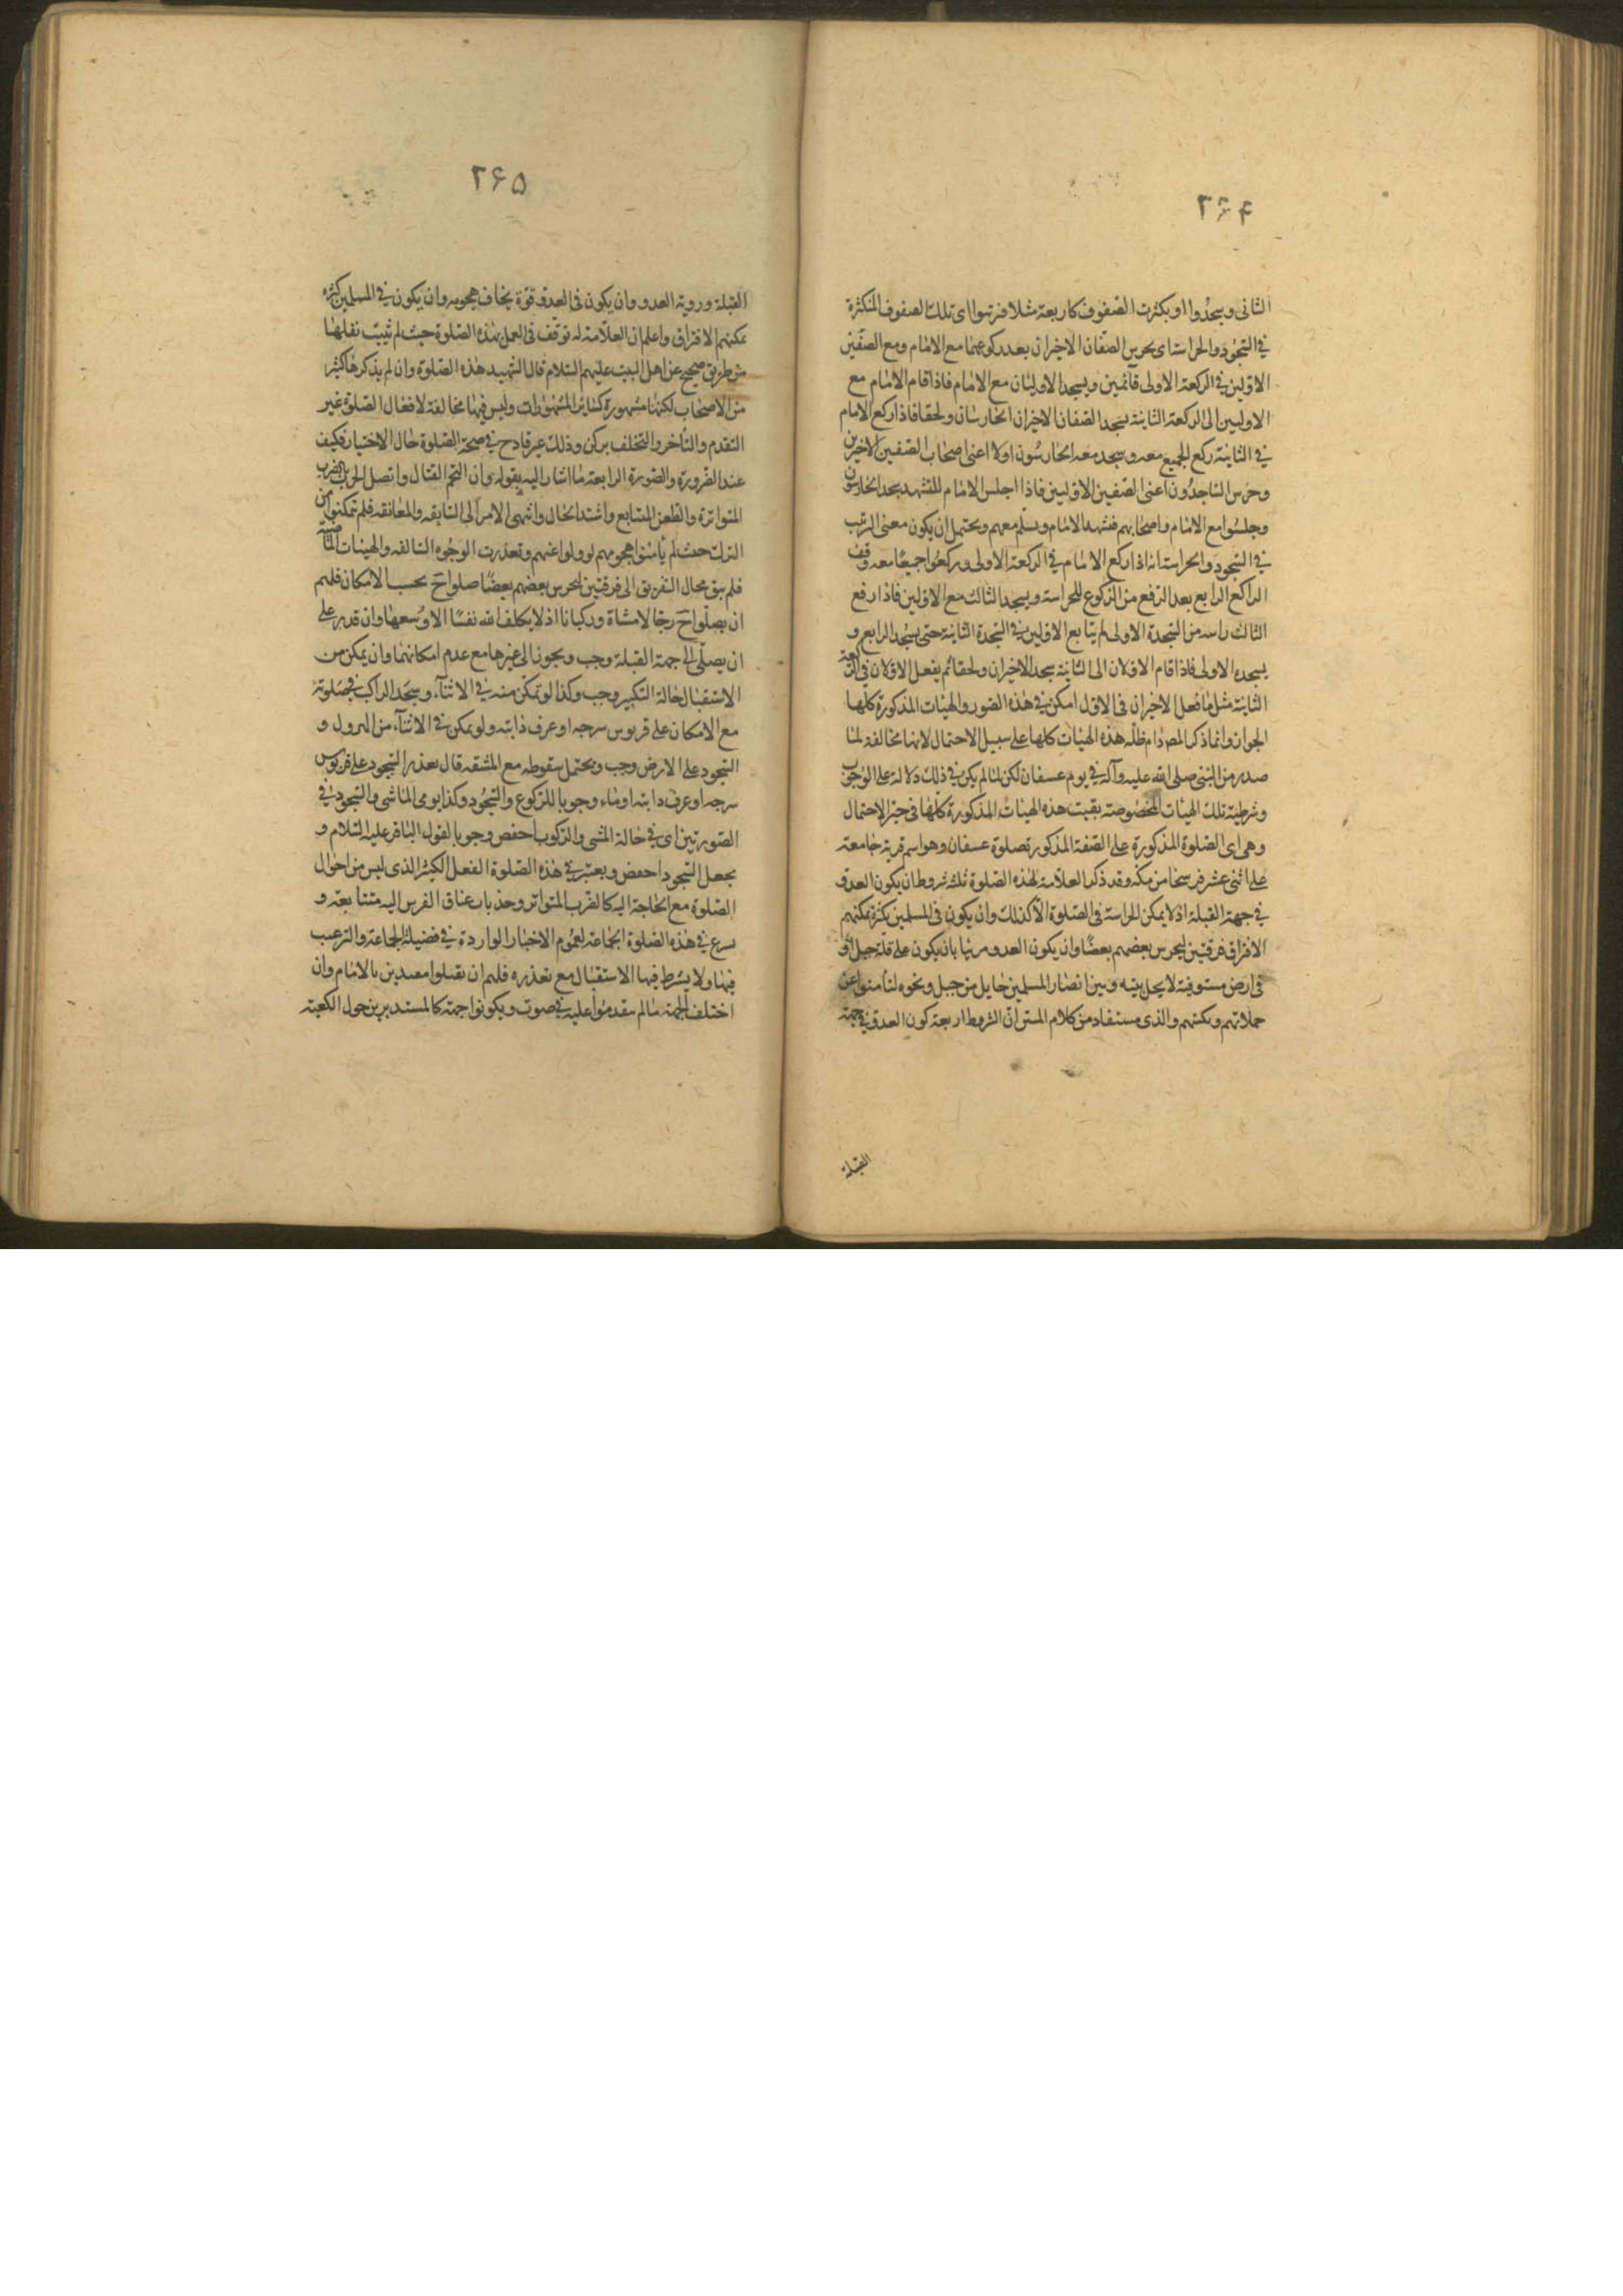 ۲۶۴
الثانى ويسجدوا او بكثرت الصفوف كاربعة مثلا فرتبوا اى تلك الصفوف المنكثرة
فى السجود والحراسة اى يحرس الصفان الاخيران بعد ركوعهما مع الامام ومع الصفين
الاولين فى الركعة الاولى قائمين ويسجد الاوليان مع الامام فاذا قام الامام مع
الاوليين الى الركعة الثانية يسجد الصفان الاخيران الحارسان ولحقا فاذا ركع الامام
فى الثانية ركع الجميع معه وسجد معه الحارسون اولا اعنى اصحاب الصفين الاخيرين
وحرس الساجدون اعنى الصفين الاوليين فاذا اجلس الامام للتشهد سجد الحارسون
وجلسوا مع الامام واصحابهم فتشهد الامام وسلم معهم ويحتمل ان يكون معنى الترتب
فى السجود والحراسة انه اذا ركع الامام فى الركعة الاولى وركعوا جميعا معه وقف
الراكع الرابع بعد الرفع من الركوع للحراسة ويسجد الثالث مع الاولين فاذا رفع
الثالث راسه من السجدة الاولى لم يتابع الاولين فى السجدة الثانية حتى يسجد الرابع و
يسجده الاولى فاذا قام الاولان الى الثانية سجد الاخيران ولحقا ثم يفعل الاولان فى الركعة
الثانية مثل ما فعل الاخيران فى الاول امكن فى هذه الصور والهيئات المذكورة كلها
الجواز وانما ذكر المص دام ظله هذه الهيئات كلها على سبيل الاحتمال لانها مخالفة لما
صدر من النبى صلى الله عليه وآله فى يوم عسفان لكن لما لم يكن فى ذلك دلالة على الوجوب
وشرطية تلك الهيئات المخصوصة بقيت هذه الهيئات المذكورة كلها فى حيز الاحتمال
وهى اى الصلوة المذكورة على الصفة المذكورة صلوة عسفان وهو اسم قرية جامعة
على اثنى عشر فرسخا من مكة وقد ذكر العلامة لهذه الصلوة ثلثة شروط ان يكون العدو
فى جهة القبلة اذ لا يمكن الحراسة فى الصلوة الا كذلك وان يكون فى المسلمين كثرة يمكنهم
الافتراق فرقتين ليحرس بعضهم بعضا وان يكون العدو مرئيا بان يكون على قلة جبل او
فى ارض مستوية لا يحل بينه وبين ابصار المسلمين حايل من جبل ونحوه لتأمنوا عن
حملاتهم وبكسهم والذى مستفاد من كلام المتن ان الشروط اربعة كون العدو فى جهة
القبلة
۲۶۵
القبلة وروية العدو وان يكون فى العدو قوة يخاف هجومه وان يكون فى المسلمين كثرة
يمكنهم الافتراق واعلم ان العلامة له توقف فى العمل بهذه الصلوة حيث لم تثبت نقلها
من طريق صحيح عن اهل البيت عليهم السلام قال الشهيد هذه الصلوة وان لم يذكرها كثير
من الاصحاب لكنها مشهورة كسائر المشهورات وليس فيها مخالفة لافعال الصلوة غير
التقدم والتأخر والتخلف بركن وذلك غير قادح فى صحة الصلوة حال الاختيار فكيف
عند الضرورة والصورة الرابعة ما اشار اليه بقوله وان التحم القتال واتصل الحرب بالضرب
المتواترة والطعن المتتابع واشتد الحال وانتهى الامر الى السايفة والمعانقة فلم تمكنوا من
الترك حيث لم يأمنوا هجومهم لو ولوا عنهم وتعذرت الوجوه السالفة والهيئات الماضية
فلم يبق محال التفريق الى فرقتين ليحرس بعضهم بعضا صلوا ح بحسب الامكان فلهم
ان يصلوا ح رجالا مشاة وركبانا اذ لا يكلف الله نفسا الا وسعها وان قدر على
ان يصلى الى جهة القبلة وجب ويجوز الى غيرها مع عدم امكانهما وان يمكن من
الاستقبال حالة التكبير وجب وكذا لو تمكن منه فى الاثناء ويسجد الراكب فى صلوته
مع الامكان على قربوس سرجه او عرف دابته ولو تمكن فى الاثناء من النزول و
السجود على الارض وجب ويحتمل سقوطه مع المشقة قال تعذر السجود على قربوس
سرجه او عرف دابته اوماء وجوبا للركوع والسجود وكذا يومى الماشى والسجود فى
الصورتين اى فى حالة المشى والركوب اخفض وجوبا لقول الباقر عليه السلام و
يجعل السجود اخفض ويعتبر فى هذه الصلوة الفعل الكثير الذى ليس من احوال
الصلوة مع الحاجة اليه كالضرب المتواتر وجذب عناق الفرس اليه متتابعة و
يسرع فى هذه الصلوة الجماعة لعموم الاخبار الواردة فى فضيلة الجماعة والترغيب
فيها ولا يشترط فيها الاستقبال مع تعذره فلهم ان يقبلوا مقتدين بالامام وان
اختلف الجهة ما لم يتقدموا عليه فى صوب ويكونوا جهة كالمستديرين حول الكعبة